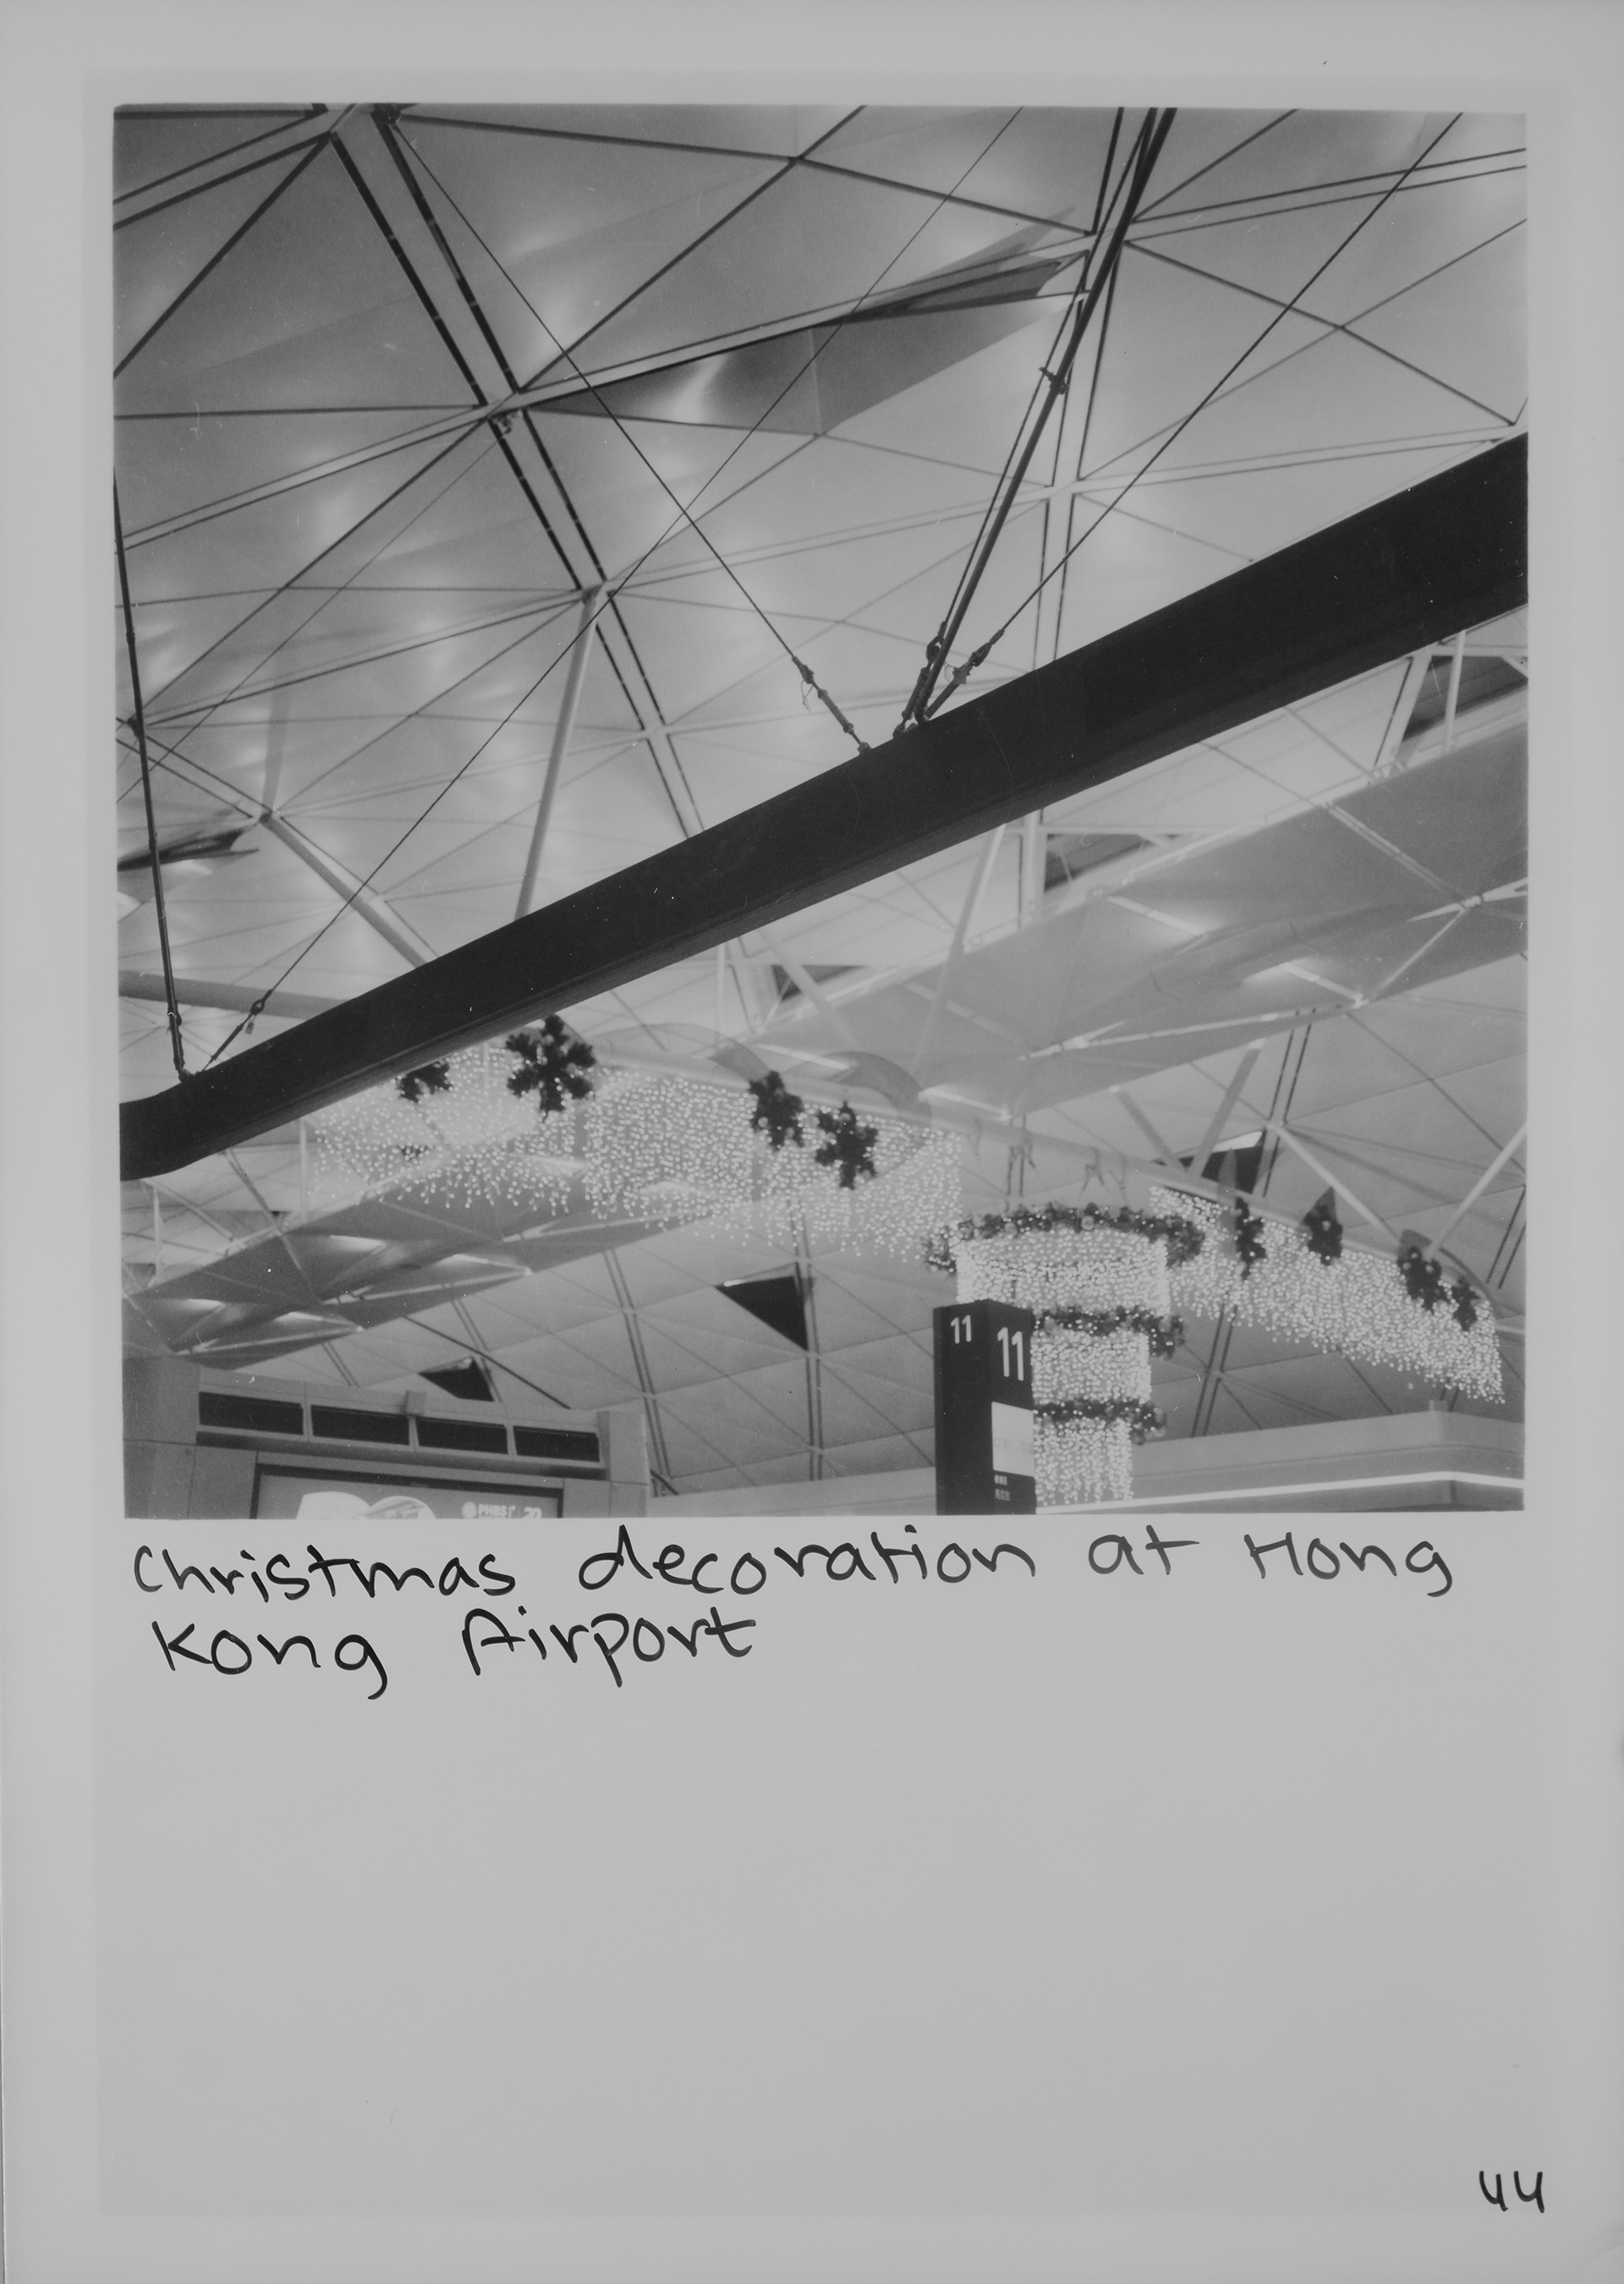 11 11
Christmas decoration at Hong
Kong Airport
44